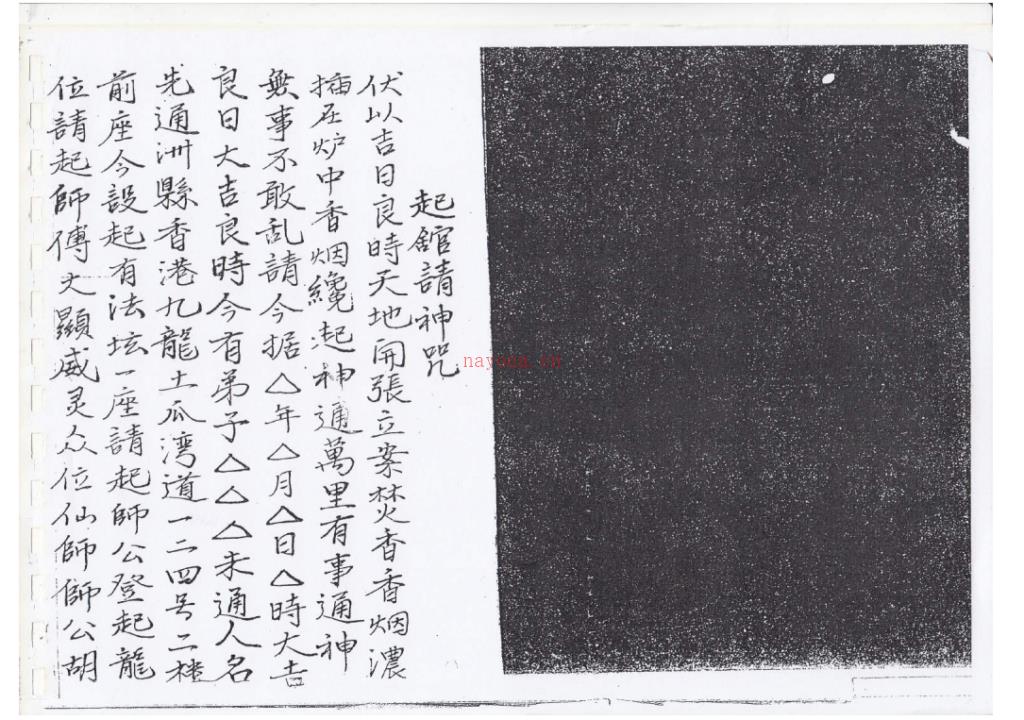 起舘請神咒
伏以吉日良時天地開張立案焚香香烟濃
插在炉中香烟纔起神通萬里有事通神
無事不敢乱請今据△年△月△日△時大吉
良日大吉良時今有弟子△△△未通人名
先通洲縣香港九龍土瓜湾道一二四号二楼
前座今設起有法坛一座請起師公登起龍
位請起師傅文顯威灵众位仙師師公胡
nayona.cn